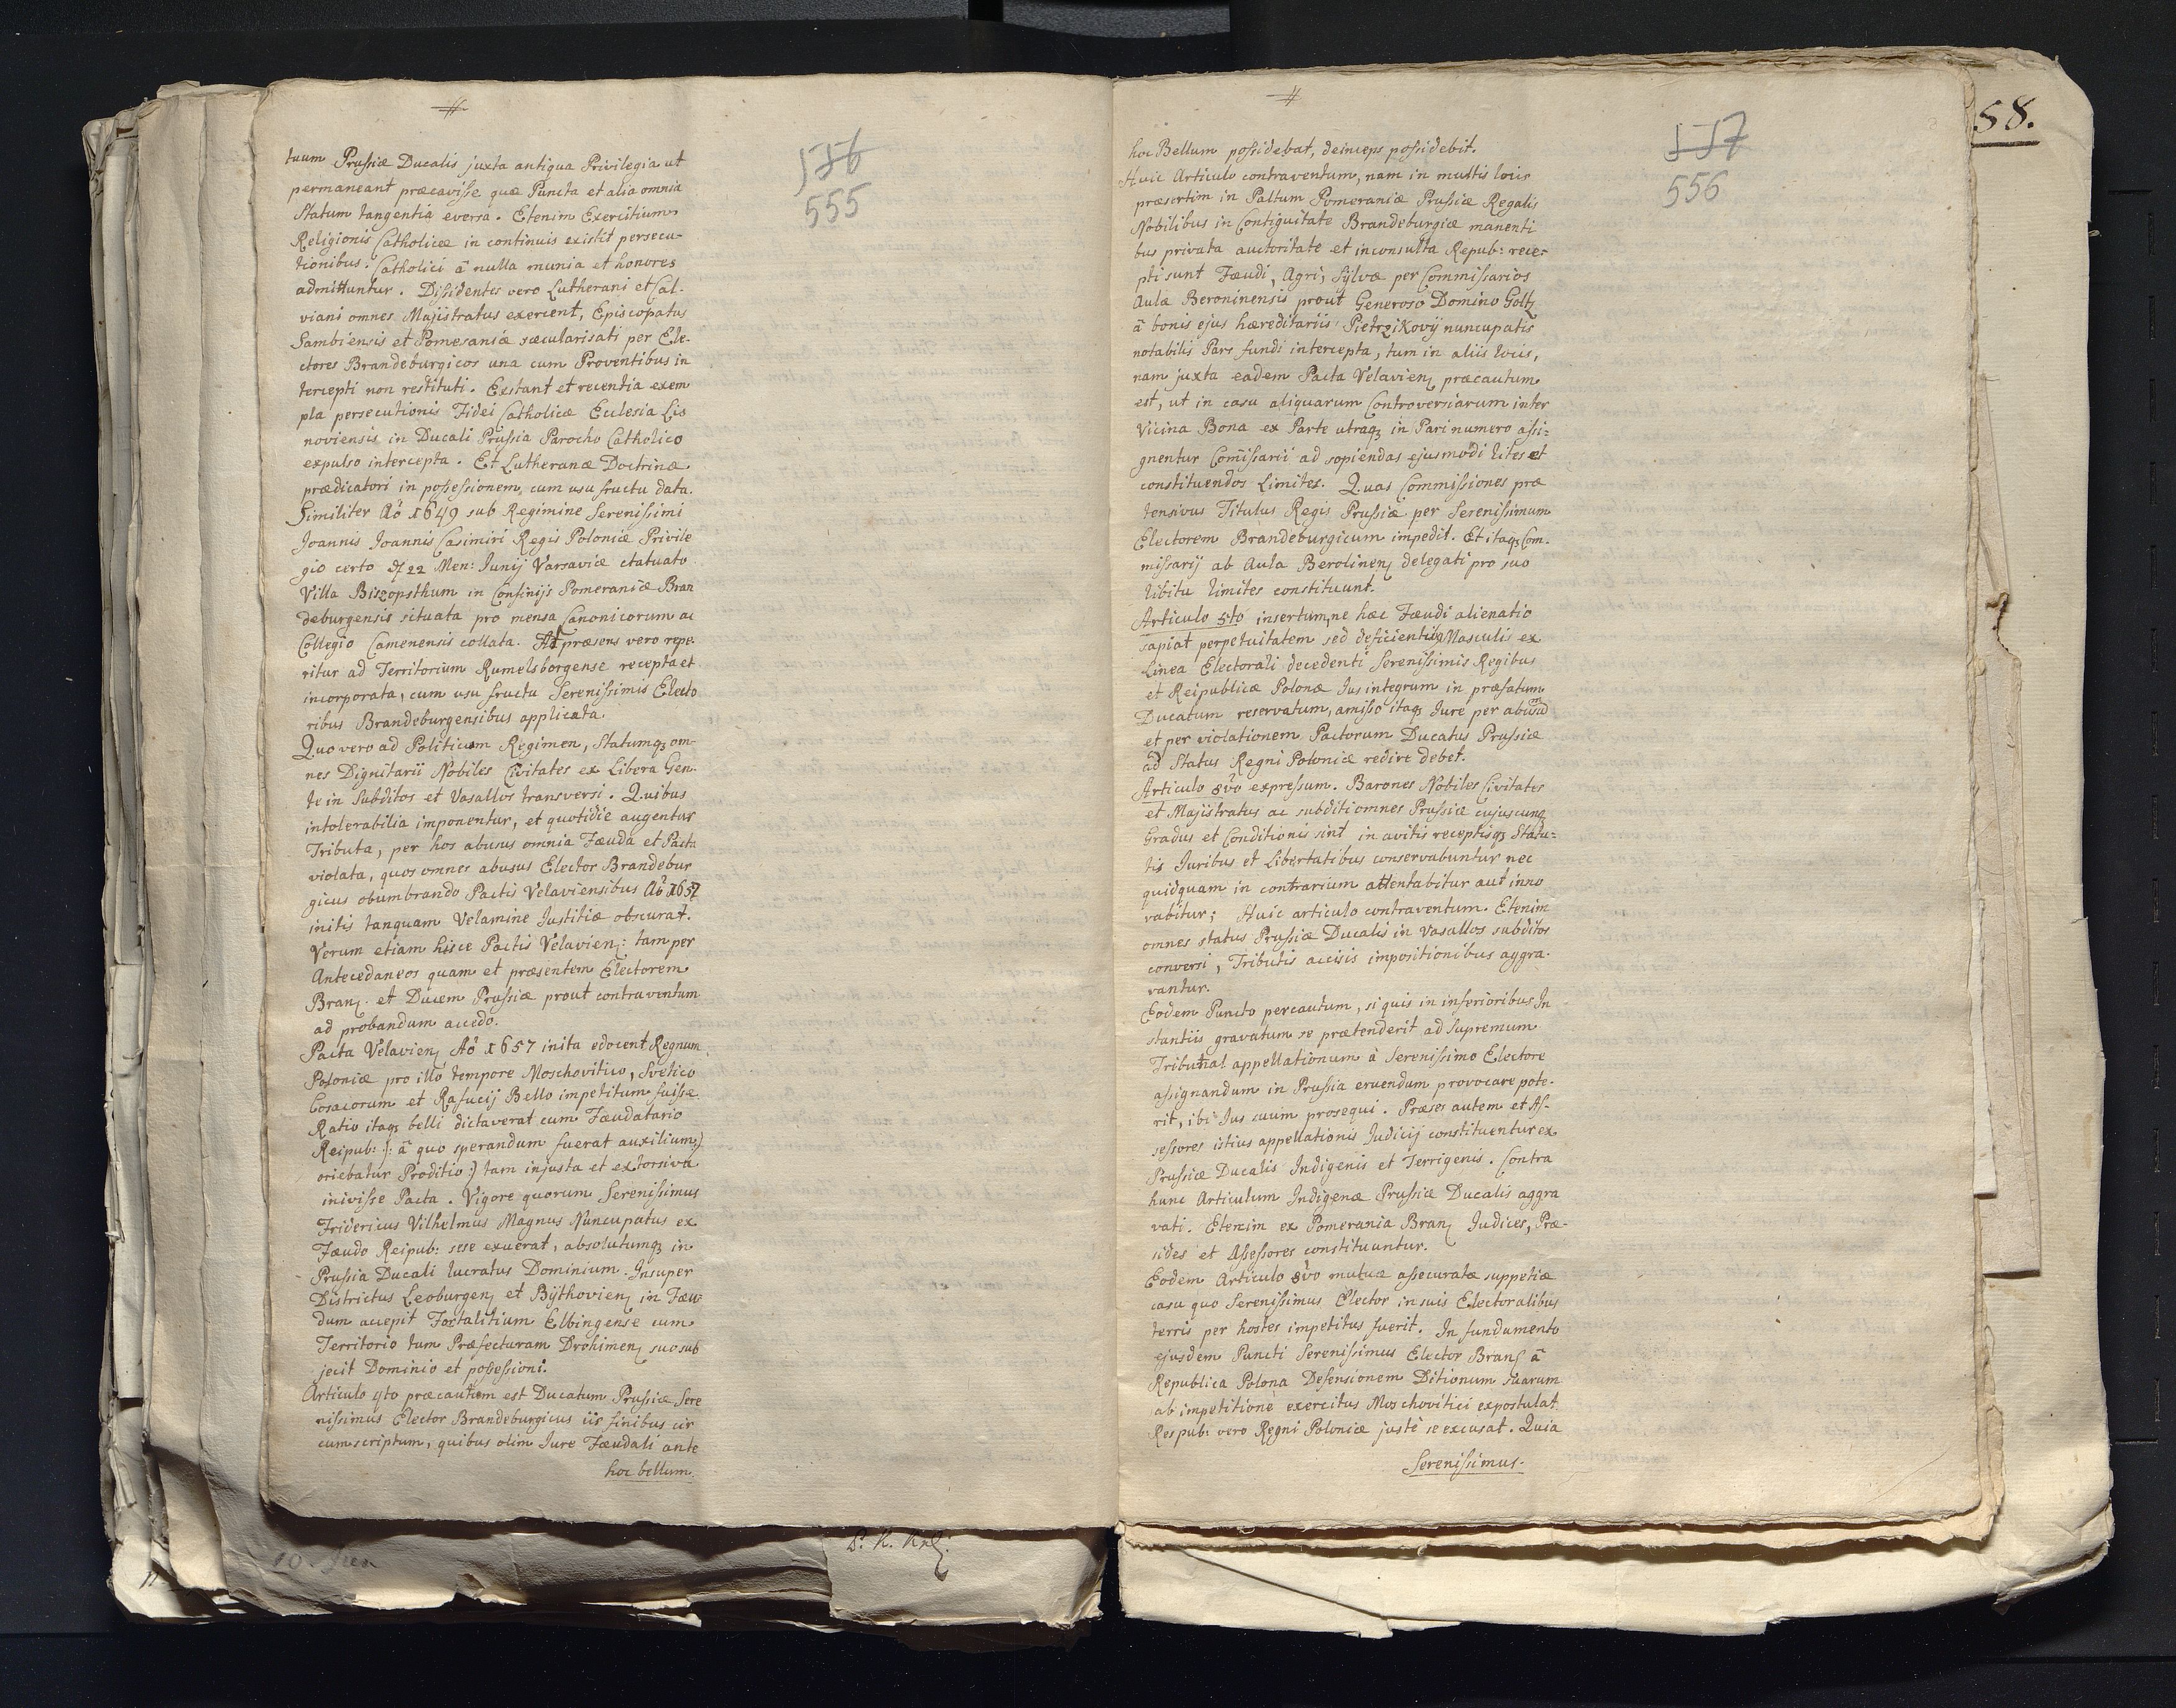 #
tuum Prussiæ Ducalis juxta antiqua Privilegia ut
permaneant præcavisse quæ Puncta et alia omnia
Statum tangentia eversa. Etenim Exercitium
Religionis Catholicæ in continuis existit persecu-
tionibus. Catholici â nulla munia et honores
admittuntur. Dissidentes vero Lutherani et Cal-
viani omnes Majistratus exercent, Episcopatus
Sambiensis et Pomesaniæ sæcularisati per Ele-
ctores Brandeburgicos una cum Proventibus in
tercepti non restituti. Exstant et recentia exem
pla persecutionis Fidei Catholicæ Ecclesia Lis
noviensis in Ducali Prussia Parocho Catholico
expulso intercepta. Et Lutheranæ Doctrinæ
prædicatori in possessionem, cum usu fructu data.
Similiter Aô 1649 sub Regimine Serenissimi
Joannis Joannis Casimiri Regis Poloniæ Privile
gio certo 22 Men: Junij Varsaviæ ctatuato
Villa Biszopsthum in Confinijs Pomeraniæ Bran
deburgensis situata pro mensa Canonicorum ac
Collegio Camenensis collata. At præsens vero repe-
ritur ad Territorium Rumelsborgense recepta et
incorporata, cum usu fructu Serenissimis Electo
ribus Brandeburgensibus applicata.
Quo vero ad Politicum Regimen, Statumqz om-
nes Dignitarii Nobiles Civitates ex Libera Gen-
te in Subditos et Vasallos transversi. Quibus
intolerabilia imponentur, et quotidie augentur
Tributa, per hos abusus omnia Fæuda et Pacta
violata, quos omnes abusus Elector Brandebur
gicus obumbrando Pactis Velaviensibus Aô 1657
initis tanquam Velamine Justitiæ obscurat.
Verum etiam hisce Pactis Velavienz: tam per
Antecedaneos quam et præsentem Electorem
Branz. et Ducem Prussiæ prout contraventum
ad probandum accedo.
Pacta Velavienz Aô 1657 inita edocent Regnum
Poloniæ pro illo tempore Moschovitico, Svetico
Cosacorum et Rafucij Bello impetitum fuisse
Ratio itaqz belli dictaverat cum Fæudatario
Reipub: (: â quo sperandum fuerat auxilium:)
oriebatur Proditio:) tam injusta et extorsiva
inivisse Pacta. Vigore quorum Serenissimus
Fridericus Vilhelmus Magnus Nuncupatus ex
Fæudo Reipub: sese exuerat, absolutumqz in
Prussia Ducali lucratus Dominium. Insuper
Districtus Leoburgenz et Bÿthovienz in Fæu-
dum accepit Fortalitium Elbingense cum
Territorio tum Præfecturam Drohimenz suo sub
jecit Dominio et possessioni.
Articulo 4to præcautum est Ducatum Prussiæ Sere
nissimus Elector Brandeburgicus iis finibus cir
cumscriptum, quibus olim Jure Fæudali ante
hoc bellum.
536
555
#
hoc Bellum possidebat, deinceps possidebit.
Huic Articulo contraventum, nam in multis locis
præsertim in Paltum Pomeraniæ Prussiæ Regalis
Nobilibus in Contiguitate Brandeburgiæ manenti
bus privata auctoritate et inconsulta Repub: rece-
pti sunt Fæudi, Agri, Sÿlvæ per Commissarios
Aulæ Beroninensis prout Generoso Domino Goltz
â bonis ejus hæreditariis Pietrzikovÿ nuncupatis
notabilis Pars fundi intercepta, tum in aliis locis,
nam juxta eadem Pacta Velavienz præcautum
est, ut in casu aliquarum Controversiarum inter
Vicina Bona ex Parte utraqz in Pari numero assi-
gnentur Com̃issarii ad sopiendas ejusmodi lites et
constituendos Limites. Quas Commissiones præ
tensivus Titulus Regis Prussiæ per Serenissimum
Electorem Brandeburgicum impedit. Et itaqz Com-
missarij ab Aula Berolinenz delegati pro suo
libitu limites constituunt.
Articulo 5to insertum, ne hæc Fæudi alienatio
sapiat perpetuitatem sed deficientibq Masculis ex
Linea Electorali decedenti Serenissimis Regibus
et Reipublicæ Polonæ Jus integrum in præfatum
Ducatum reservatum, amisso itaqz Jure per abusum
et per violationem Pactorum Ducatus Prussiæ
ad Status Regni Poloniæ redire debet.
Articulo 8vo expressum. Barones Nobiles Civitates
et Majistratus ac subditi omnes Prussiæ cujuscunqz
Gradus et Conditionis sint in avitis receptisqz Statu-
tis Juribus et Libertatibus conservabuntur nec
quidquam in contrarium attentabitur aut inno
vabitur; Huic articulo contraventum. Etenim
omnes status Prussiæ Ducalis in Vasallos subditos
conversi, Tributis accisis impositionibus aggra-
vantur.
Eodem Puncto percautum, si quis in inferioribus In
stantiis gravatum se prætenderit ad Supremum
Tribunal appellationum à Serenissimo Electore
assignandum in Prussia eruendum provocare pote-
rit, ibi Jus suum prosequi. Præses autem et As-
sessores istius appellationis Judicij constituentur ex
Prussiæ Ducalis Indigenis et Terrigenis. Contra
hunc Articulum Indigenæ Prussiæ Ducalis aggra
vati. Etenim ex Pomerania Branz Judices, Præ-
sides et Assessores constituuntur.
Eodem Articulo 8vo mutuæ assecuratæ suppetiæ
casu quo Serenissimus Elector in suis Electoralibus
terris per hostes impetitus fuerit. In fundamento
ejusdem Puncti Serenissimus Elector Branz â
Republica Polona Defensionem Ditionum suarum
ab impetitione exercitus Moschovitici expostulat.
Respub: vero Regni Poloniæ justè se excusat. Quia
Serenissimus.
557
556
58.